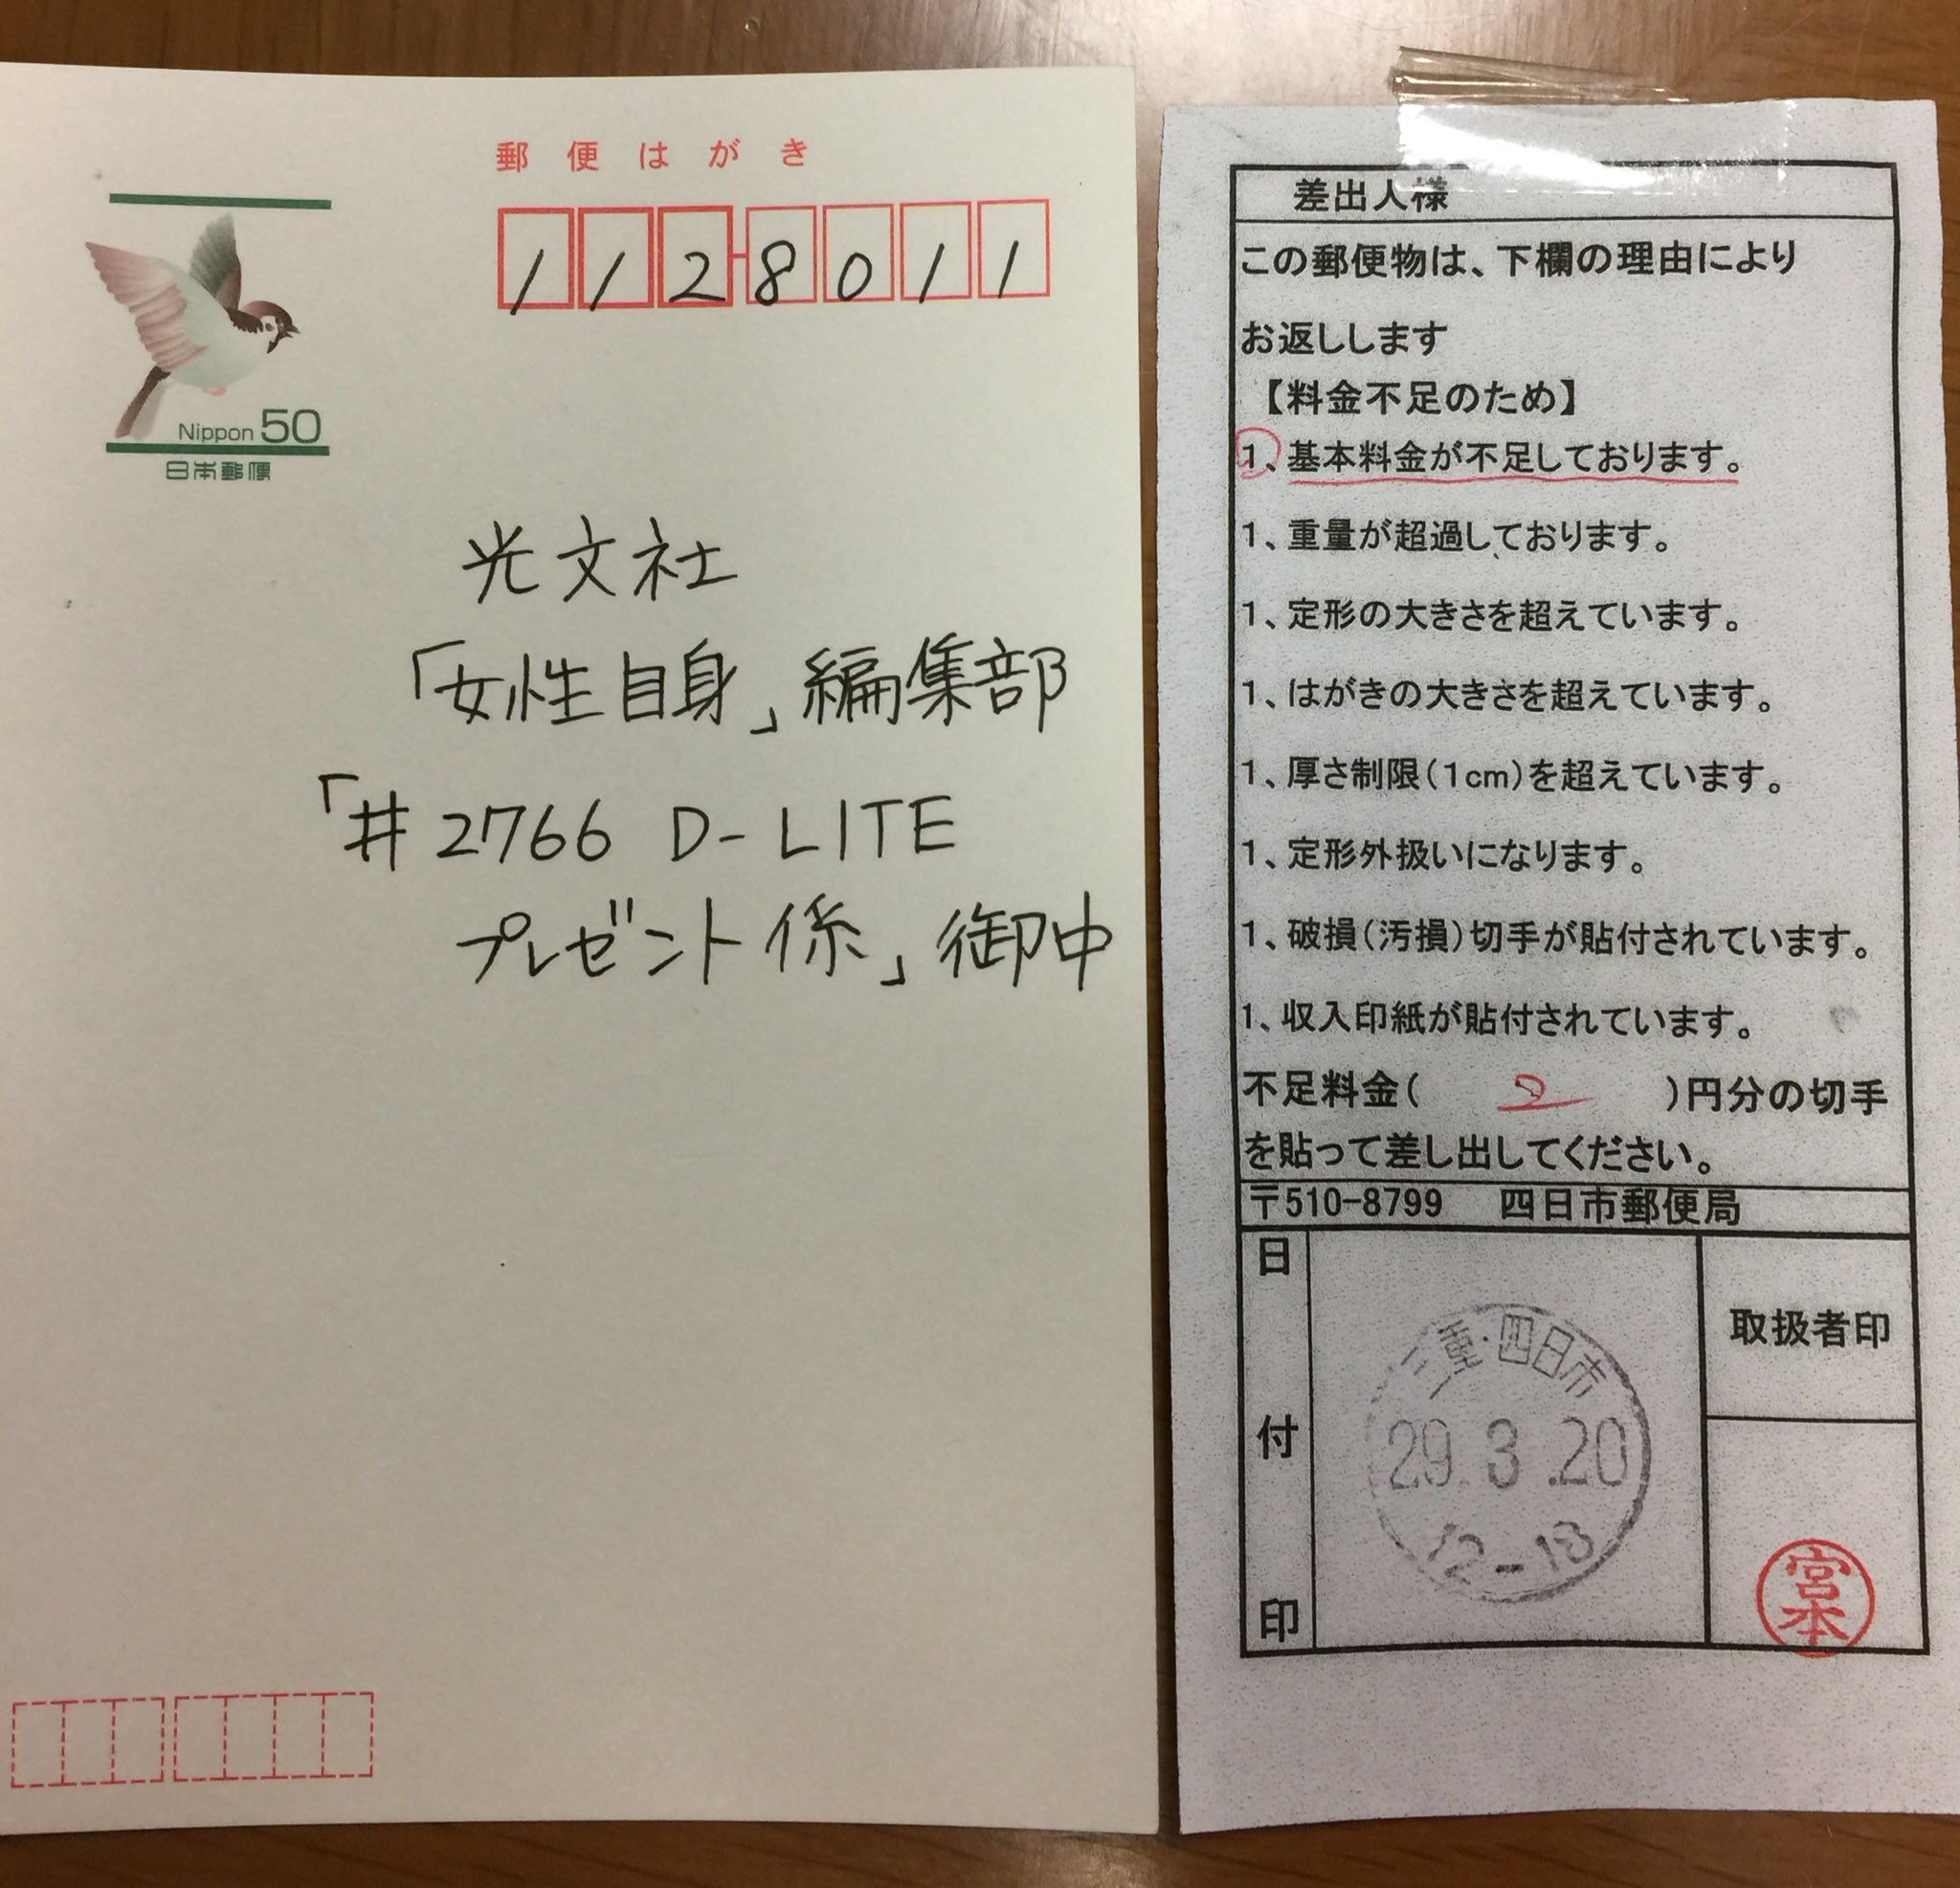 郵便はがき
1128011
Nippon 50
日本郵便
光文社
「女性自身」編集部
「#2766 D-LITE
プレゼント係」御中
差出人様
この郵便物は、下欄の理由により
お返しします
【料金不足のため】
1、基本料金が不足しております。
1、重量が超過しております。
1、定形の大きさを超えています。
1、はがきの大きさを超えています。
1、厚さ制限(1cm)を超えています。
1、定形外扱いになります。
1、破損(汚損)切手が貼付されています。
1、収入印紙が貼付されています。
不足料金( 2 )円分の切手
を貼って差し出してください。
〒510-8799 四日市郵便局
日付印
三重・四日市
29.3.20
12-18
取扱者印
宮本